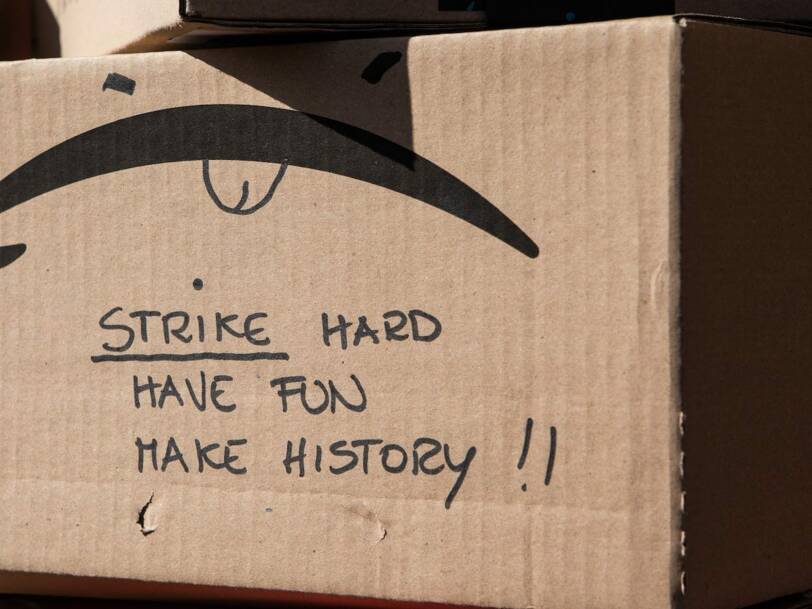 STRIKE HARD
HAVE FUN
MAKE HISTORY !!